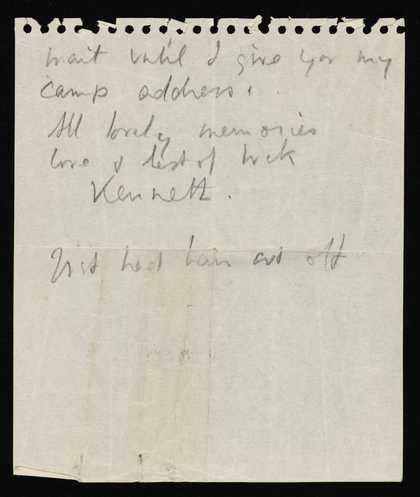 wait until I give you my
camp address.
All lovely memories
love & best of luck
Kenneth.
Just had hair cut off